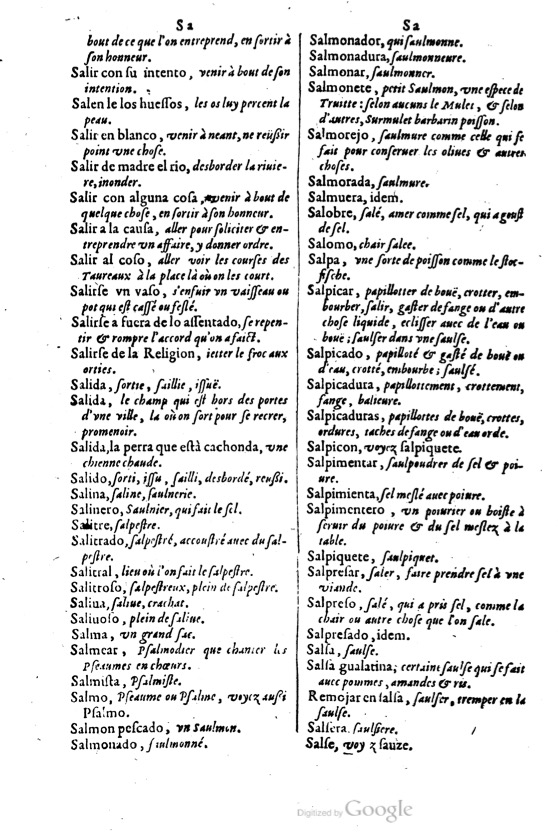 Sa
bout de ce que l'on entreprend, en sortir à
son honneur.
Salir con su intento, venir à bout de son
intention.
Salen le los huessos, les os luy percent la
peau.
Salir en blanco, venir à neant, ne reüssir
point vne chose.
Salir de madre el rio, desborder la riuie-
re, inonder.
Salir con alguna cosa, venir à bout de
quelque chose, en sortir à son honneur.
Salir a la causa, aller pour soliciter & en-
treprendre vn affaire, y donner ordre.
Salir al coso, aller voir les courses des
Taureaux à la place là où on les court.
Salirse vn vaso, s'enfuir vn vaisseau ou
pot qui est cassé ou feslé.
Salirse a fuera de lo assentado, se repen-
tir & rompre l'accord qu'on a faict.
Salirse de la Religion, ietter le froc aux
orties.
Salida, sortie, saillie, issuë.
Salida, le champ qui est hors des portes
d'vne ville, là où on sort pour se recrer,
promenoir.
Salida, la perra que està cachonda, vne
chienne chaude.
Salido, sorti, issu, sailli, desbordé, reussi.
Salina, saline, saulnerie.
Salinero, Saulnier, qui fait le sel.
Salitre, salpestre.
Salitrado, salpestré, accoustré auec du sal-
pestre.
Salitral, lieu où l'on fait le salpestre.
Salitroso, salpestreux, plein de salpestre.
Saliua, saliue, crachat.
Saliuoso, plein de saliue.
Salma, vn grand sac.
Salmear, Psalmodier que chanter les
Pseaumes en chœurs.
Salmista, Psalmiste.
Salmo, Pseaume ou Psalme, voyez aussi
Psalmo.
Salmon pescado, vn Saulmon.
Salmonado, saulmonné.
Sa
Salmonador, qui saulmonne.
Salmonadura, saulmonneure.
Salmonar, saulmonner.
Salmonete, petit Saulmon, vne espece de
Truitte : selon aucuns le Mulet, & selon
d'autres, Surmulet barbarin poisson.
Salmorejo, saulmure comme celle qui se
fait pour conseruer les oliues & autres
choses.
Salmorada, saulmure.
Salmuera, idem.
Salobre, salé, amer comme sel, qui a goust
de sel.
Salomo, chair salee.
Salpa, vne sorte de poisson comme le stoc-
fische.
Salpicar, papillotter de bouë, crotter, em-
bourber, salir, gaster de fange ou d'autre
chose liquide, eclisser auec de l'eau ou
bouë ; saulser dans vne saulse.
Salpicado, papilloté & gasté de bouë ou
d'eau, crotté, embourbe ; saulsé.
Salpicadura, papillottement, crottement,
fange, balieure.
Salpicaduras, papillottes de bouë, crottes,
ordures, taches de fange ou d'eau orde.
Salpicon, voyez salpiquete.
Salpimentar, saulpoudrer de sel & poi-
ure.
Salpimienta, sel meslé auec poiure.
Salpimentero, vn poiurier ou boiste à
seruir du poiure & du sel meslez à la
table.
Salpiquete, saulpiquet.
Salpresar, saler, faire prendre sel à vne
viande.
Salpreso, salé, qui a pris sel, comme la
chair ou autre chose que l'on sale.
Salpresado, idem.
Salsa, saulse.
Salsa gualatina; certaine saulse qui se fait
auec pommes, amandes & ris.
Remojar en salsa, saulser, tremper en la
saulse.
Salsera, saulsiere.
Salse, voy z sauze.
Digitized by Google